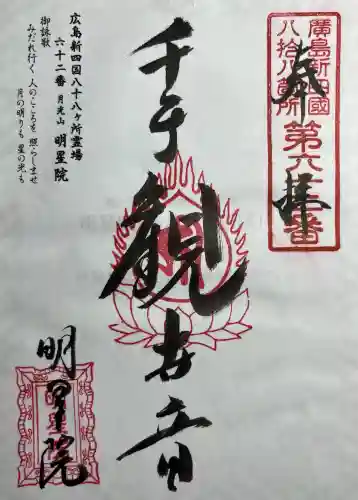 廣島新四國
八拾八箇所
第六十二番
奉拝
千手観世音
広島新四国八十八ヶ所霊場
六十二番 月光山 明星院
御詠歌
みだれ行く 人のこころを 照らしませ
月の明りも 星の光も
明星院
明星院